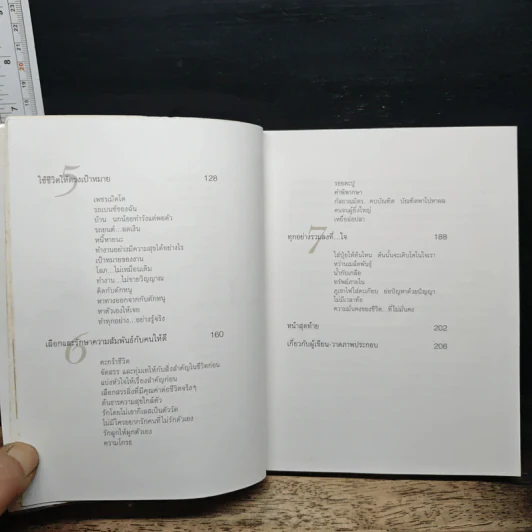 5
ใช้ชีวิตให้ตรงเป้าหมาย 128
เพชรเม็ดโต
รถเบนซ์ของฉัน
บ้าน นกน้อยทำรังแต่พอตัว
รถยนต์...ผลเงิน
หนี้หายนะ
ทำงานอย่างมีความสุขได้อย่างไร
เป้าหมายของงาน
โลภ...ไม่เหมือนเดิม
ทำงาน...ไม่ขายวิญญาณ
ติดกับดักหนู
หาทางออกจากกับดักหนู
หาตัวเองให้เจอ
ทำทุกอย่าง...อย่างรู้จริง
6
เลือกและรักษาความสัมพันธ์กับคนให้ดี 160
ตะกร้าชีวิต
จัดสรร และทุ่มเทให้กับสิ่งสำคัญในชีวิตก่อน
แบ่งหัวใจให้เรื่องสำคัญก่อน
เลือกสรรสิ่งที่มีคุณค่าต่อชีวิตจริงๆ
ค้นหาความสุขใกล้ตัว
รักโดยไม่เอากิเลสเป็นตัวรัก
ไม่มีใครอยากรักคนที่ไม่รักตัวเอง
รักลูกให้ผูกตัวเอง
ความโกรธ
รอยตะปู
คำพิพากษา
กัลยาณมิตร...คบบัณฑิต บัณฑิตพาไปหาผล
คนจนผู้ยิ่งใหญ่
เหยื่อล่อปลา
7
ทุกอย่างรวมลงที่...ใจ 188
ใส่ปุ๋ยให้ต้นไหน ต้นนั้นจะเติบโตในใจเรา
หว่านเมล็ดพันธุ์
น้ำกับเกลือ
ทรัพย์ภายใน
ไม่มีเวลาทั้ง
ความมั่นคงของชีวิต...ที่ไม่มั่นคง
หน้าสุดท้าย 202
เกี่ยวกับผู้เขียน-วาดภาพประกอบ 208